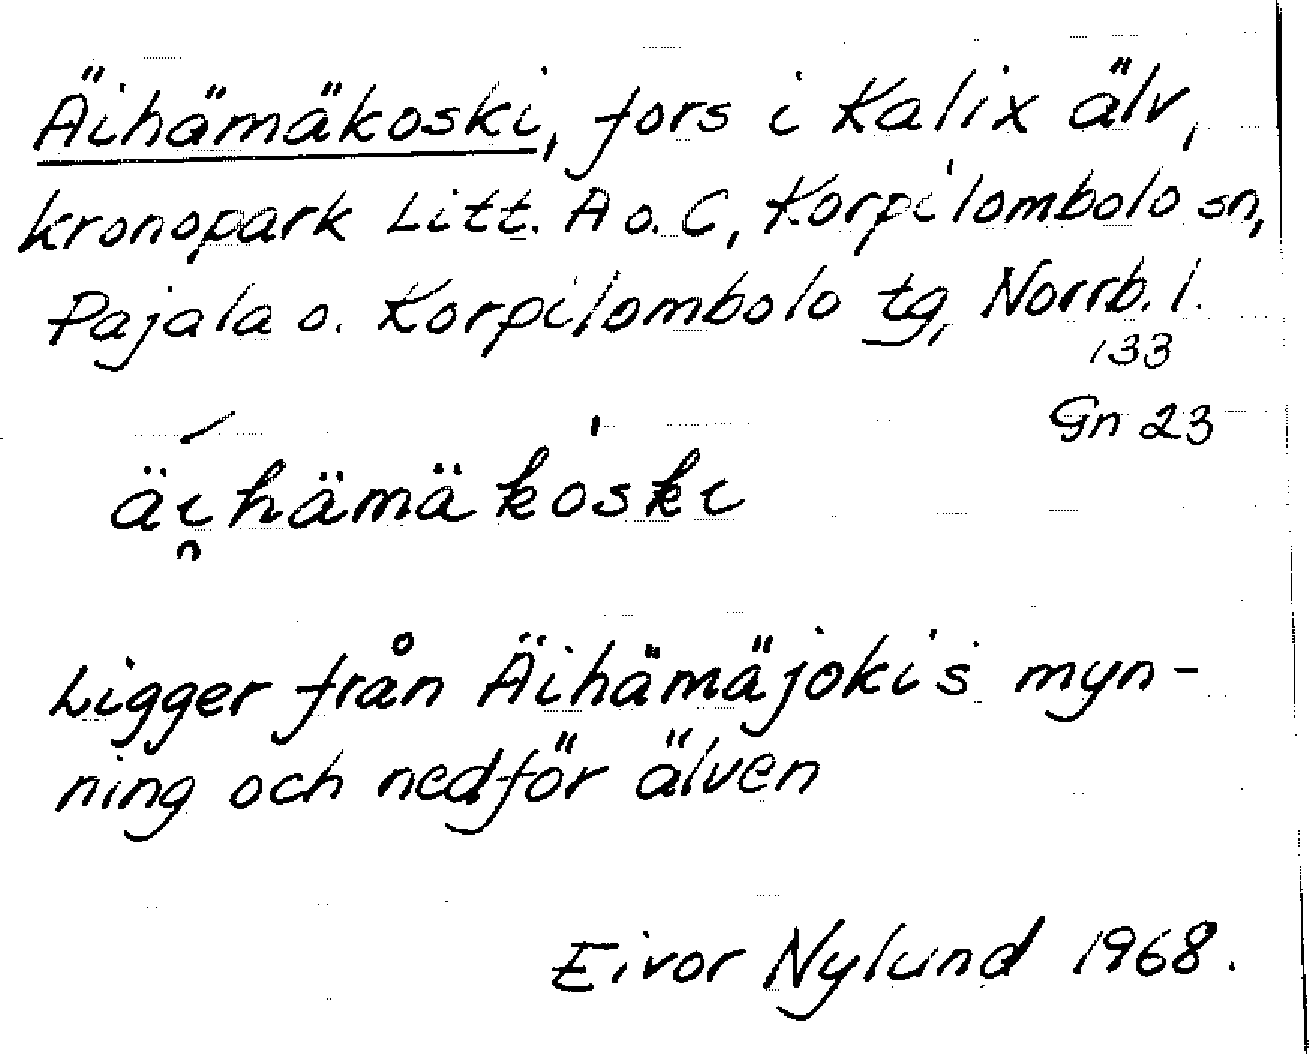 Äihämäkoski, fors i Kalix älv,
kronopark Litt. A o. C, Korpilombolo sn,
Pajala o. Korpilombolo tg, Norrb. l.
133
Gn 23
äi̯hämäkoski
Ligger från Äihämäjokis myn-
ning och nedför älven
Eivor Nylund 1968.